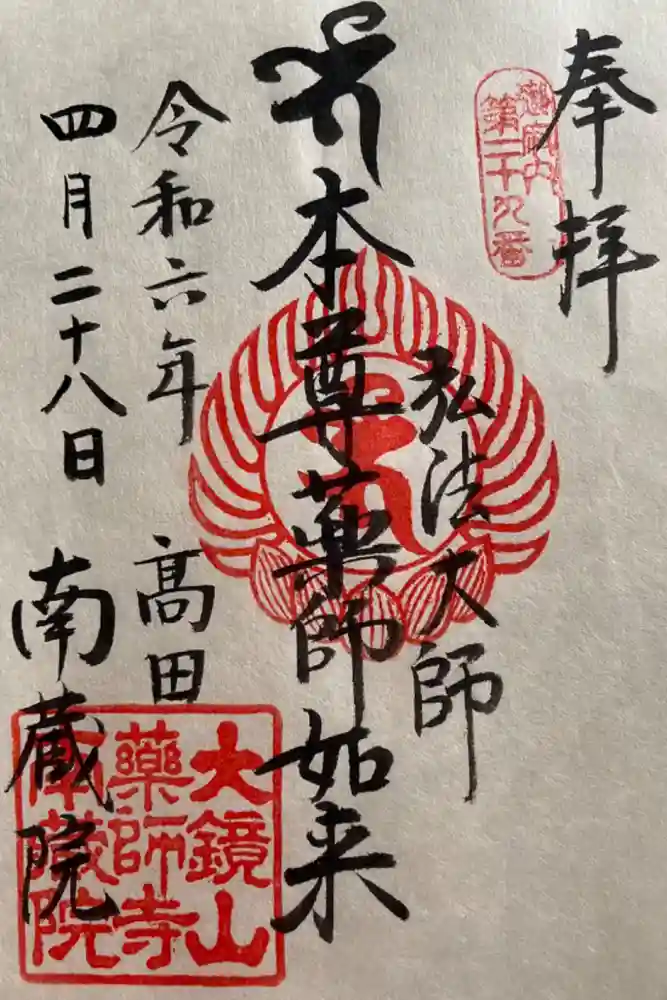 奉拝
御府内
第二十九番
弘法大師
本尊薬師如来
令和六年
四月二十八日
高田
南蔵院
大鏡山
薬師寺
南蔵院